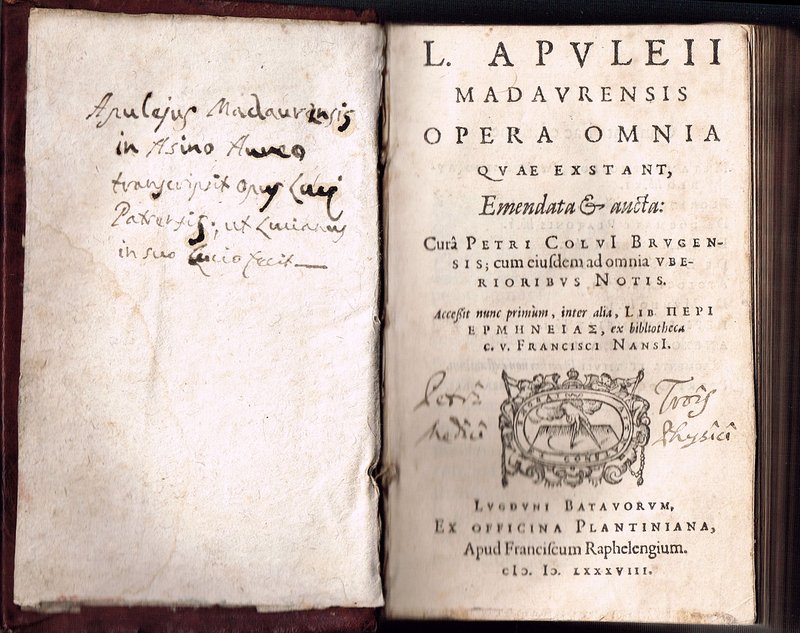 Apulejus Madaurensis
in Asino Aureo
transcripsit opus Lucij
Patrensis, ut Lucianus
in suo Lucio fecit
L. APVLEII
MADAVRENSIS
OPERA OMNIA
QVAE EXSTANT,
Emendata & aucta:
Curâ PETRI COLVI BRVGEN-
SIS; cum eiusdem ad omnia VBE-
RIORIBVS NOTIS.
Acceßit nunc primùm, inter alia, LIB. ΠΕΡΙ
ΕΡΜΗΝΕΙΑΣ, ex bibliotheca
C. V. FRANCISCI NANSI.
Petri
Medici
Physici
LVGDVNI BATAVORVM,
EX OFFICINA PLANTINIANA,
Apud Franciſcum Raphelengium.
cIↃ. IↃ. LXXXVIII.